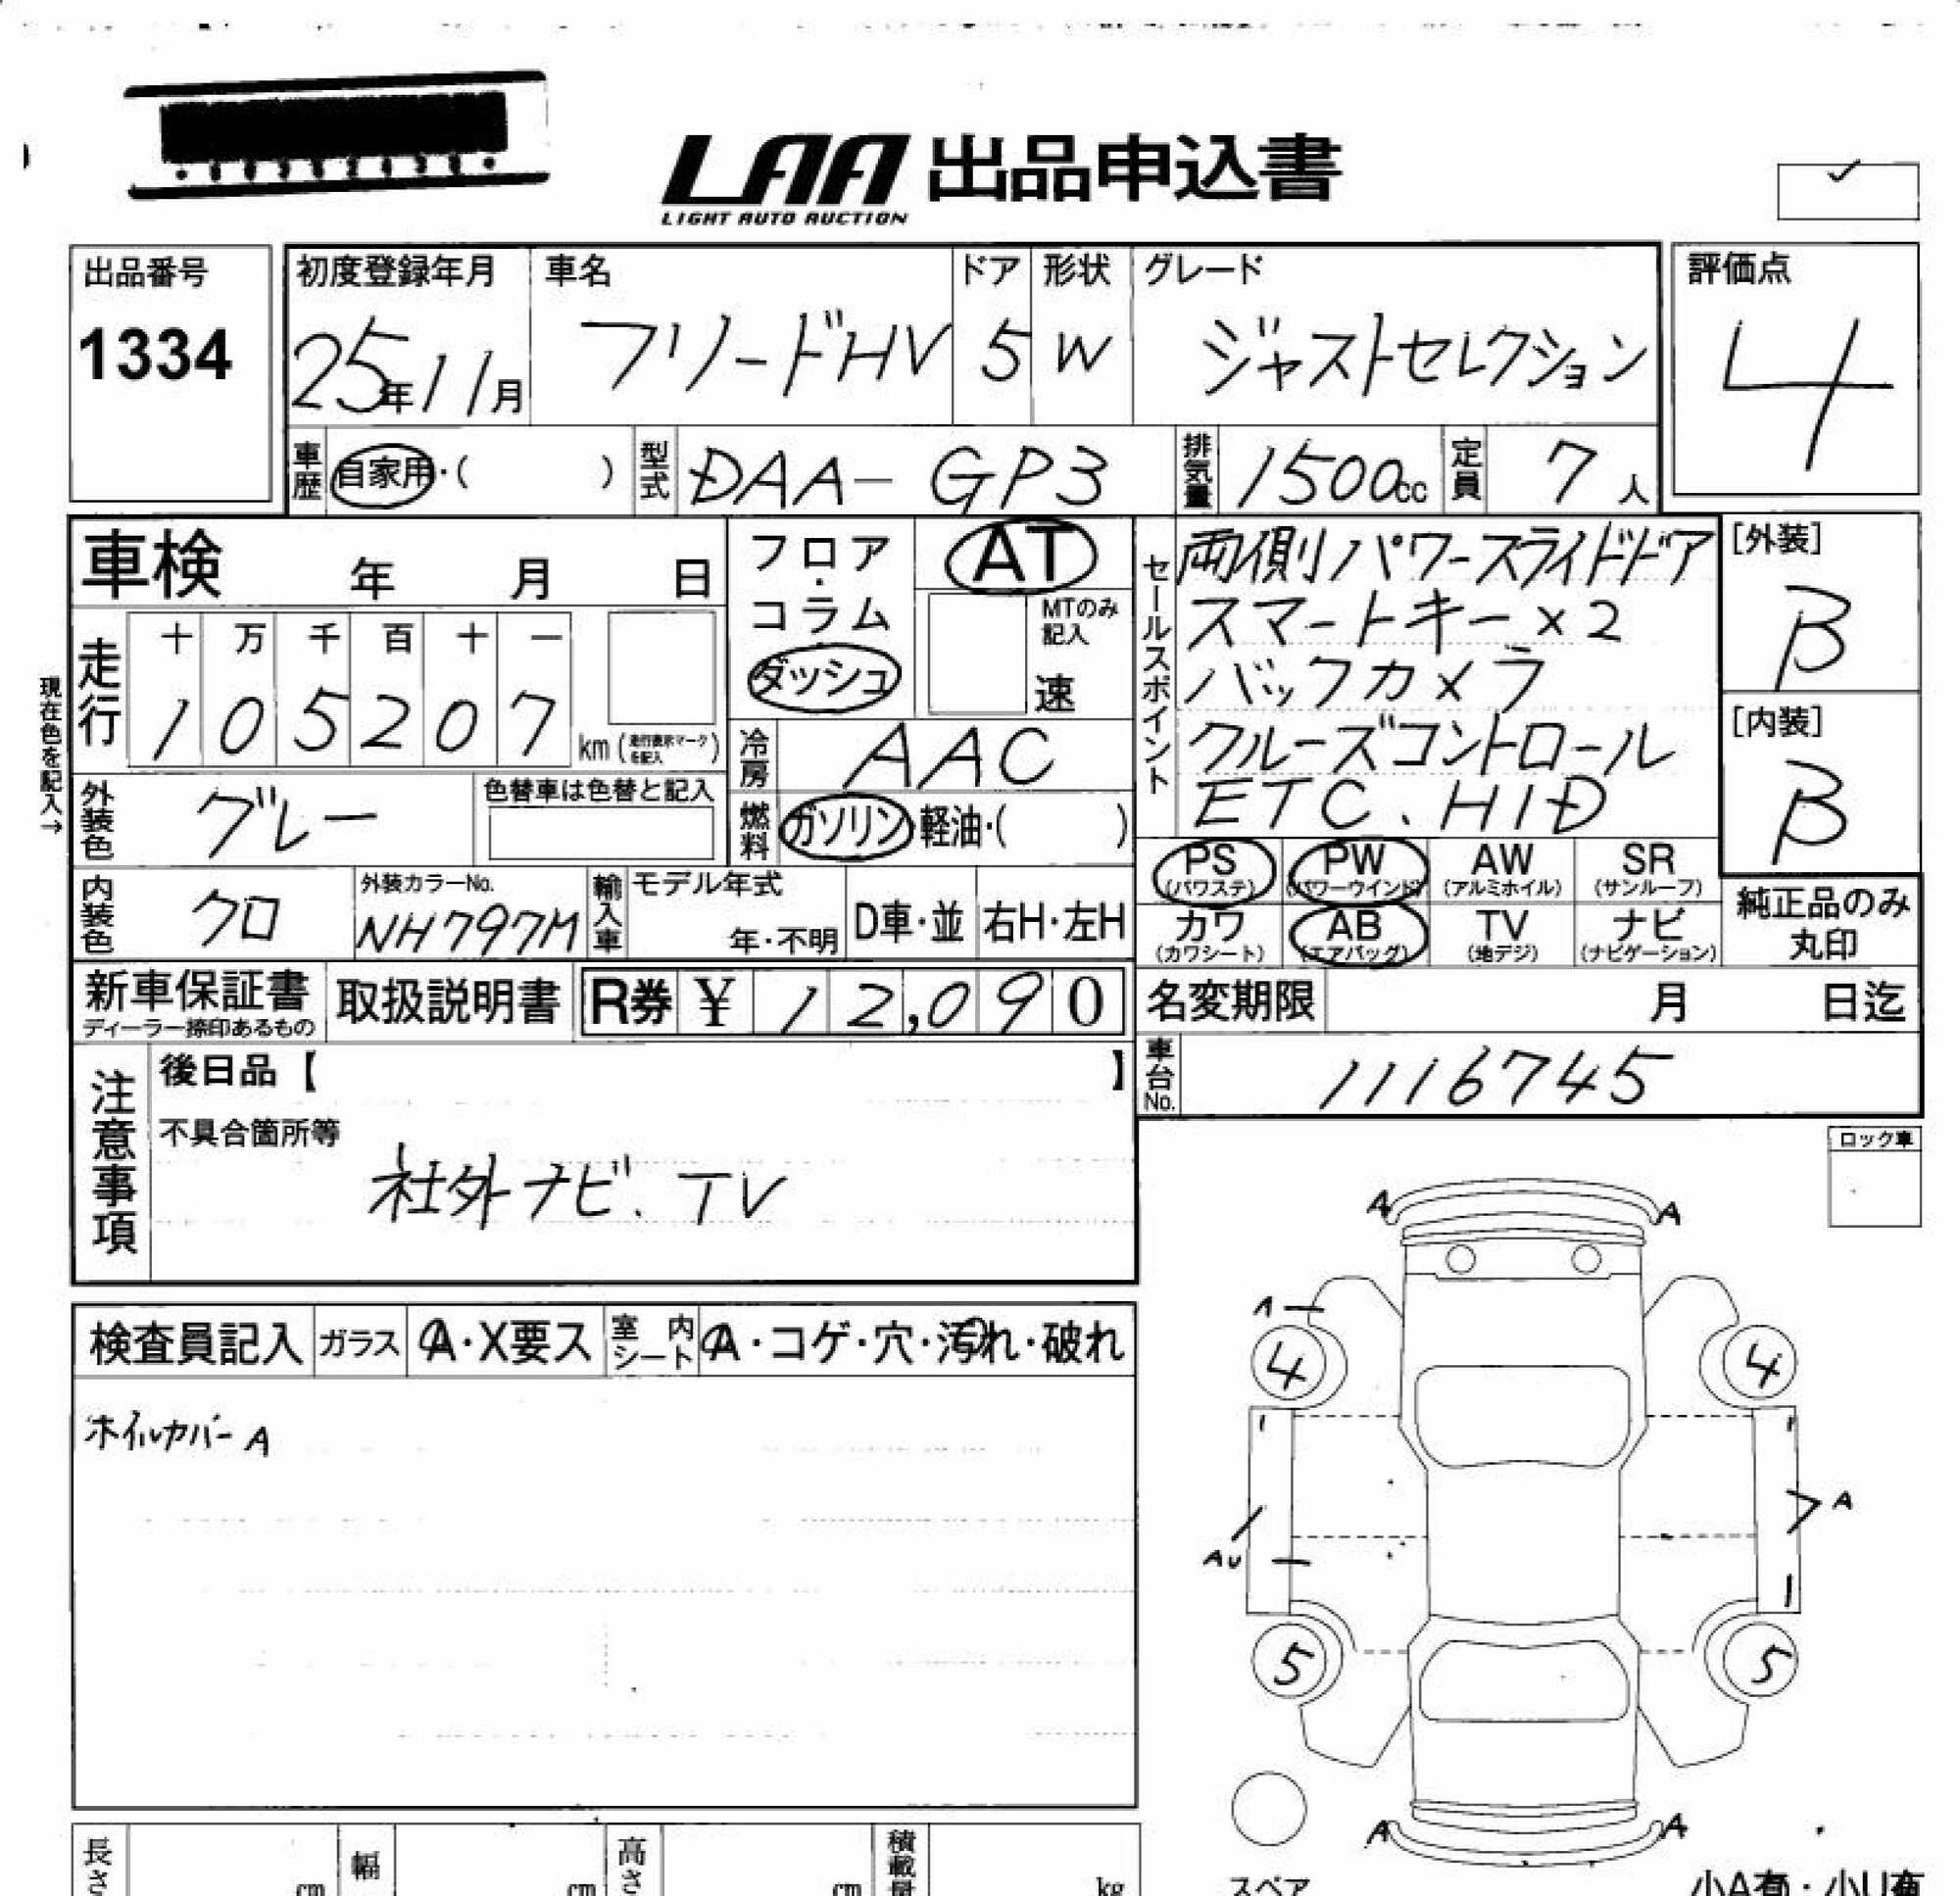 LAA 出品申込書
LIGHT AUTO AUCTION
出品番号
1334
初度登録年月
25年11月
車名
フリードHV
ドア
5
形状
W
グレード
ジャストセレクション
評価点
4
車歴
自家用・( )
型式
DAA-GP3
排気量
1500cc
定員
7人
車検 年 月 日
フロア・コラム
ダッシュ
AT
MTのみ記入
速
セールスポイント
両側パワースライドドア
スマートキー×2
バックカメラ
クルーズコントロール
ETC、HID
[外装]
B
[内装]
B
現在色を記入→
走行
十 万 千 百 十 一
1 0 5 2 0 7
km (走行表示マークを記入)
冷房
AAC
燃料
ガソリン・軽油・( )
外装色
グレー
色替車は色替と記入
内装色
クロ
外装カラーNo.
NH797M
輸入車
モデル年式
年・不明
D車・並
右H・左H
PS (パワステ)
PW (パワーウインド)
AW (アルミホイル)
SR (サンルーフ)
カワ (カワシート)
AB (エアバッグ)
TV (地デジ)
ナビ (ナビゲーション)
純正品のみ丸印
新車保証書
ディーラー捺印あるもの
取扱説明書
R券 ¥ 12,090
名変期限 月 日迄
車台No.
1116745
注意事項
後日品【 】
不具合箇所等
社外ナビ、TV
ロック車
検査員記入
ガラス
A・X要ス
室内シート
A・コゲ・穴・汚れ・破れ
ホイルカバー A
A A
A
4 4
A
AU
5 5
A A
スペア
長さ cm
幅 cm
高さ cm
積載量 kg
小A有・小U有